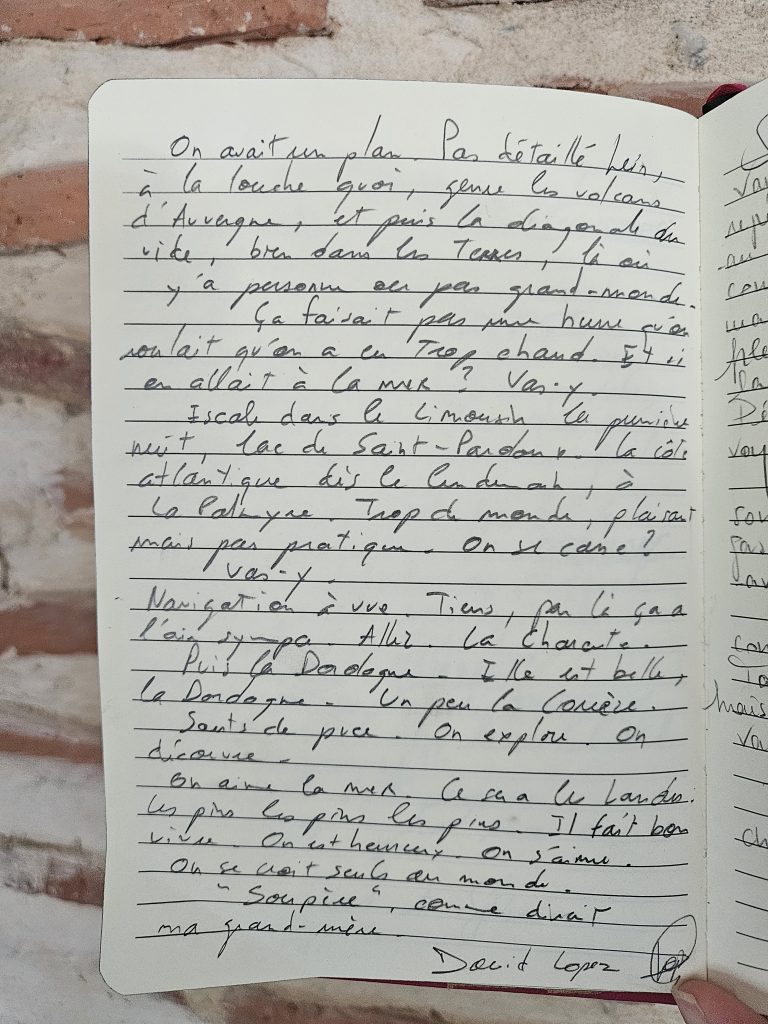 On avait un plan. Pas détaillé hein,
à la louche quoi, genre les volcans
d'Auvergne, et puis la diagonale du
vide, bien dans les Terres, là où
y'a personne ou pas grand-monde.
Ça faisait pas une heure qu'on
roulait qu'on a eu Trop chaud. Et si
on allait à la mer ? Vas-y.
Escale dans le Limousin la première
nuit, lac de Saint-Pardoux. La côte
atlantique dès le lendemain, à
La Palmyre. Trop de monde, plaisant
mais pas pratique. On se casse ?
Vas-y.
Navigation à vue. Tiens, par là ça a
l'air sympa. Allez. La Charente.
Puis la Dordogne. Elle est belle,
la Dordogne. Un peu la Corrèze.
Sauts de puce. On explore. On
découvre.
On aime la mer. Ce sera les Landes.
Les pins les pins les pins. Il fait bon
vivre. On est heureux. On s'aime.
On se croit seuls au monde.
"Soupire", comme dirait
ma grand-mère.
David Lopez